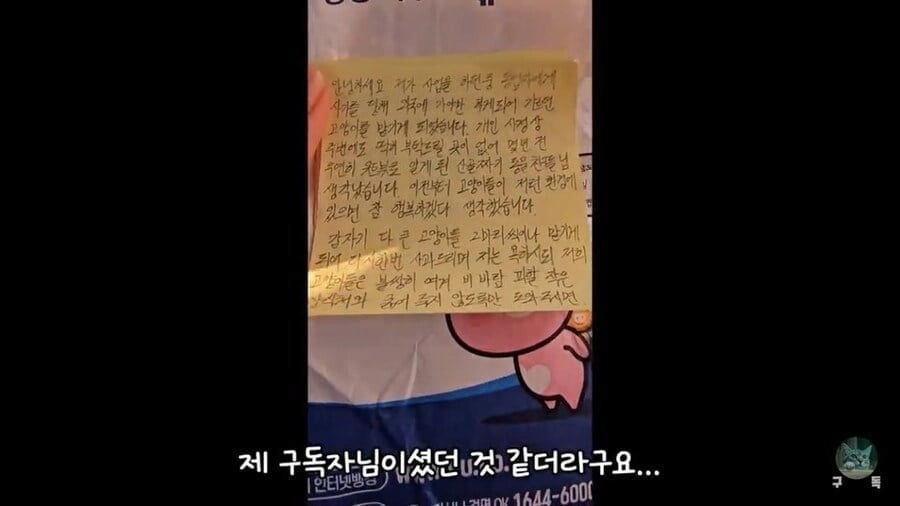 안녕하세요 제가 사업을 하던중 동업자에게
사기를 당해 외국에 가야만 하게되어 기르던
고양이를 맡기게 되었습니다. 개인 사정상
주변에도 딱히 부탁드릴 곳이 없어 몇번 전
우연히 유튜브로 알게 된 산골짜기 동물친구들님
생각났습니다. 이전부터 고양이들이 저런 환경에
있으면 참 행복하겠다 생각했습니다.
갑자기 다 큰 고양이를 2마리씩이나 맡기게
되어 다시한번 사과드리며 저는 욕하셔도 저희
고양이들은 불쌍히 여겨 비바람 피할 작은
굶어 죽지 않도록만 도와주시면
제 구독자님이셨던 것 같더라구요...
인터넷방송
OK 1644-6000
구독